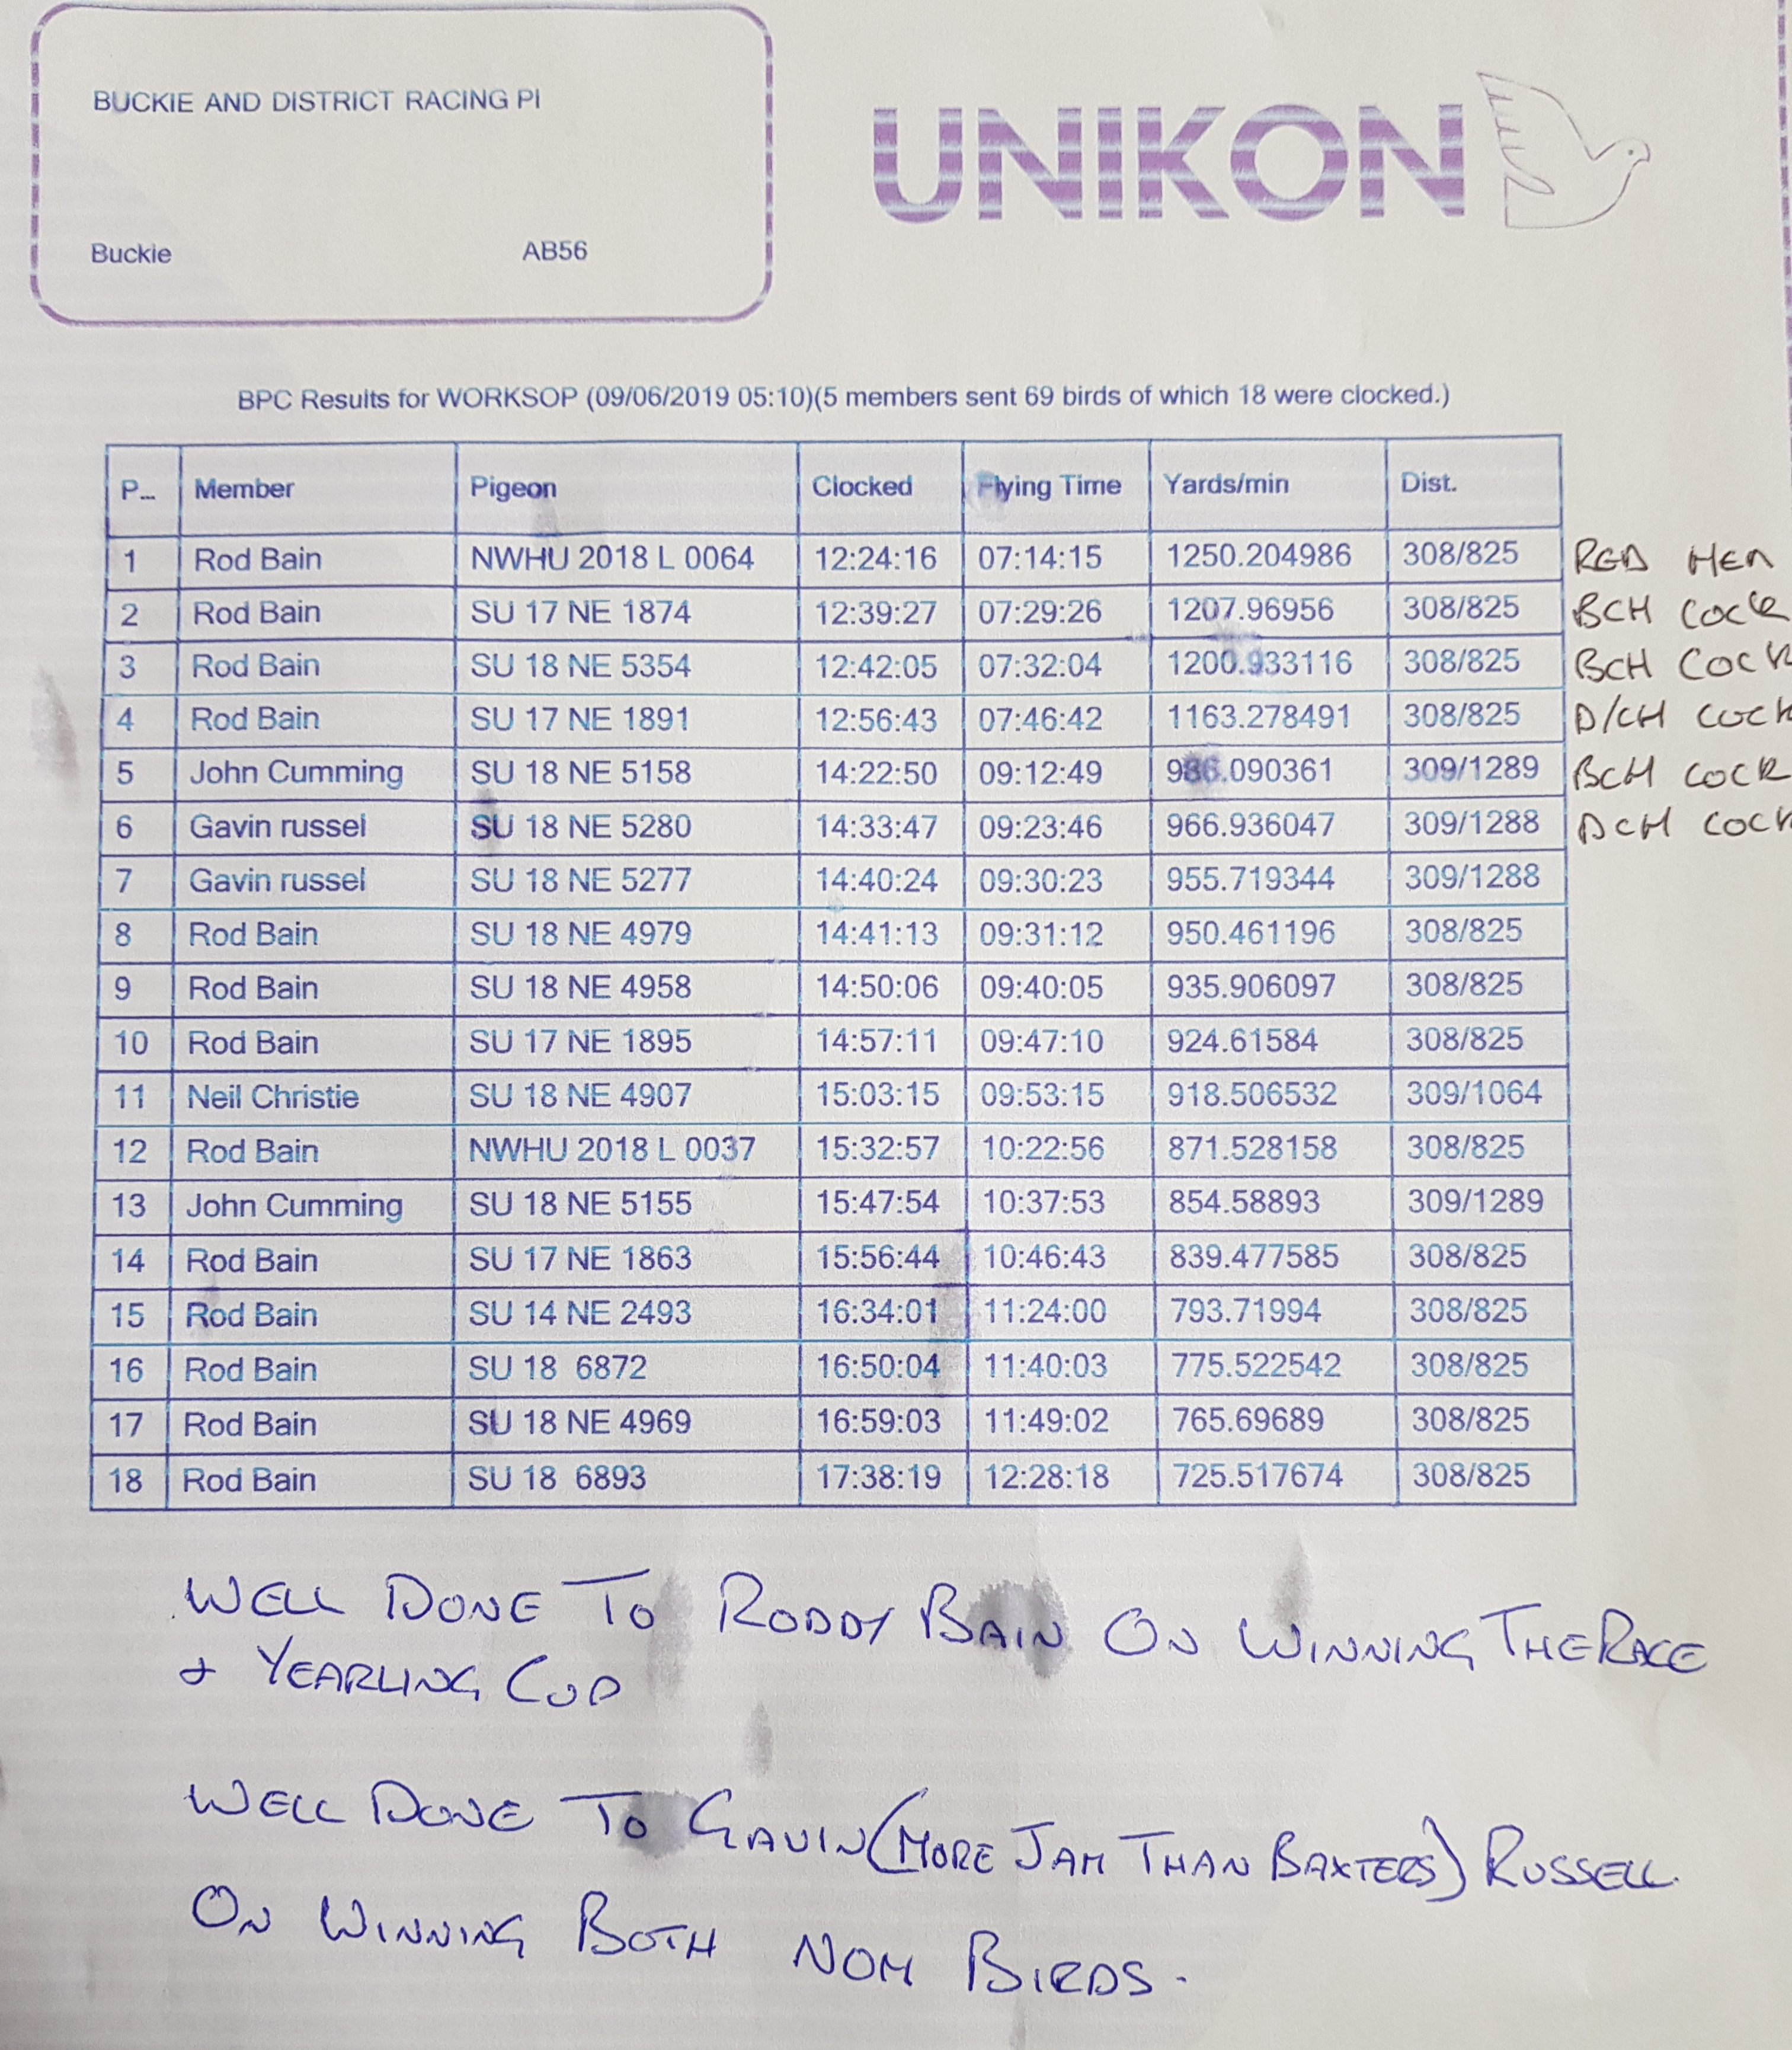 BUCKIE AND DISTRICT RACING PI
UNIKON
Buckie AB56
BPC Results for WORKSOP (09/06/2019 05:10)(5 members sent 69 birds of which 18 were clocked.)
P... Member Pigeon Clocked Flying Time Yards/min Dist.
1 Rod Bain NWHU 2018 L 0064 12:24:16 07:14:15 1250.204986 308/825 RED HEN
2 Rod Bain SU 17 NE 1874 12:39:27 07:29:26 1207.96956 308/825 BCH COCK
3 Rod Bain SU 18 NE 5354 12:42:05 07:32:04 1200.933116 308/825 BCH COCK
4 Rod Bain SU 17 NE 1891 12:56:43 07:46:42 1163.278491 308/825 D/CH COCK
5 John Cumming SU 18 NE 5158 14:22:50 09:12:49 986.090361 309/1289 BCH COCK
6 Gavin russel SU 18 NE 5280 14:33:47 09:23:46 966.936047 309/1288 DCH COCK
7 Gavin russel SU 18 NE 5277 14:40:24 09:30:23 955.719344 309/1288
8 Rod Bain SU 18 NE 4979 14:41:13 09:31:12 950.461196 308/825
9 Rod Bain SU 18 NE 4958 14:50:06 09:40:05 935.906097 308/825
10 Rod Bain SU 17 NE 1895 14:57:11 09:47:10 924.61584 308/825
11 Neil Christie SU 18 NE 4907 15:03:15 09:53:15 918.506532 309/1064
12 Rod Bain NWHU 2018 L 0037 15:32:57 10:22:56 871.528158 308/825
13 John Cumming SU 18 NE 5155 15:47:54 10:37:53 854.58893 309/1289
14 Rod Bain SU 17 NE 1863 15:56:44 10:46:43 839.477585 308/825
15 Rod Bain SU 14 NE 2493 16:34:01 11:24:00 793.71994 308/825
16 Rod Bain SU 18 6872 16:50:04 11:40:03 775.522542 308/825
17 Rod Bain SU 18 NE 4969 16:59:03 11:49:02 765.69689 308/825
18 Rod Bain SU 18 6893 17:38:19 12:28:18 725.517674 308/825
WELL DONE TO RODDY BAIN ON WINNING THE RACE
& YEARLING CUP
WELL DONE TO GAVIN (MORE JAM THAN BAXTERS) RUSSELL.
ON WINNING BOTH NOM BIRDS.